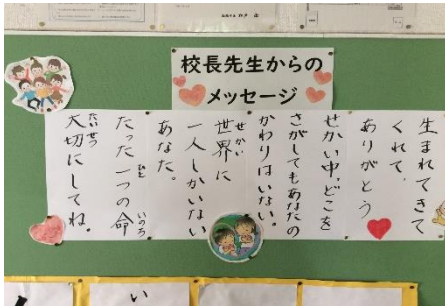 校長先生からの
メッセージ
生まれてきて
くれて、
ありがとう
せかい中、どこを
さがしてもあなたの
かわりはいない。
世界に
せかい
一人しかいない
あなた。
たった一つの命
ひと いのち
大切にしてね。
たいせつ
い